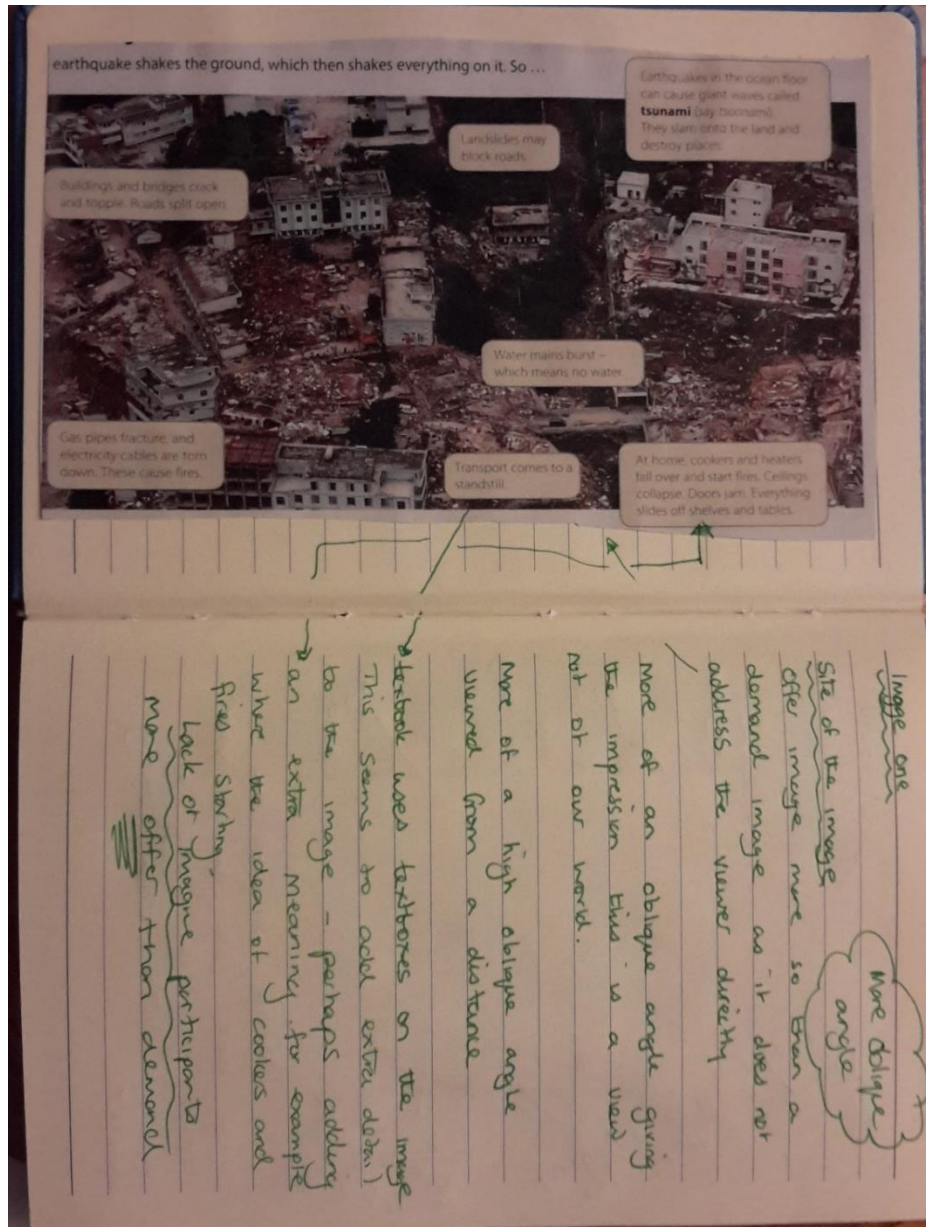 earthquake shakes the ground, which then shakes everything on it. So ...
Earthquakes in the ocean floor
can cause giant waves called
tsunami (say tsoonami).
They slam onto the land and
destroy places.
Landslides may
block roads.
Buildings and bridges crack
and topple. Roads split open.
Water mains burst –
which means no water.
Gas pipes fracture, and
electricity cables are torn
down. These cause fires.
Transport comes to a
standstill.
At home, cookers and heaters
fall over and start fires. Ceilings
collapse. Doors jam. Everything
slides off shelves and tables.
Image one
More oblique
angle
Site of the image
offer image more so than a
demand image as it does not
address the viewer directly
More of an oblique angle giving
the impression this is a view
not of our world.
More of a high oblique angle
viewed from a distance
textbook uses textboxes on the image
This seems to add extra detail
to the image – perhaps adding
an extra meaning for example
where the idea of cookers and
fires starting
Lack of participants
more offer than demand